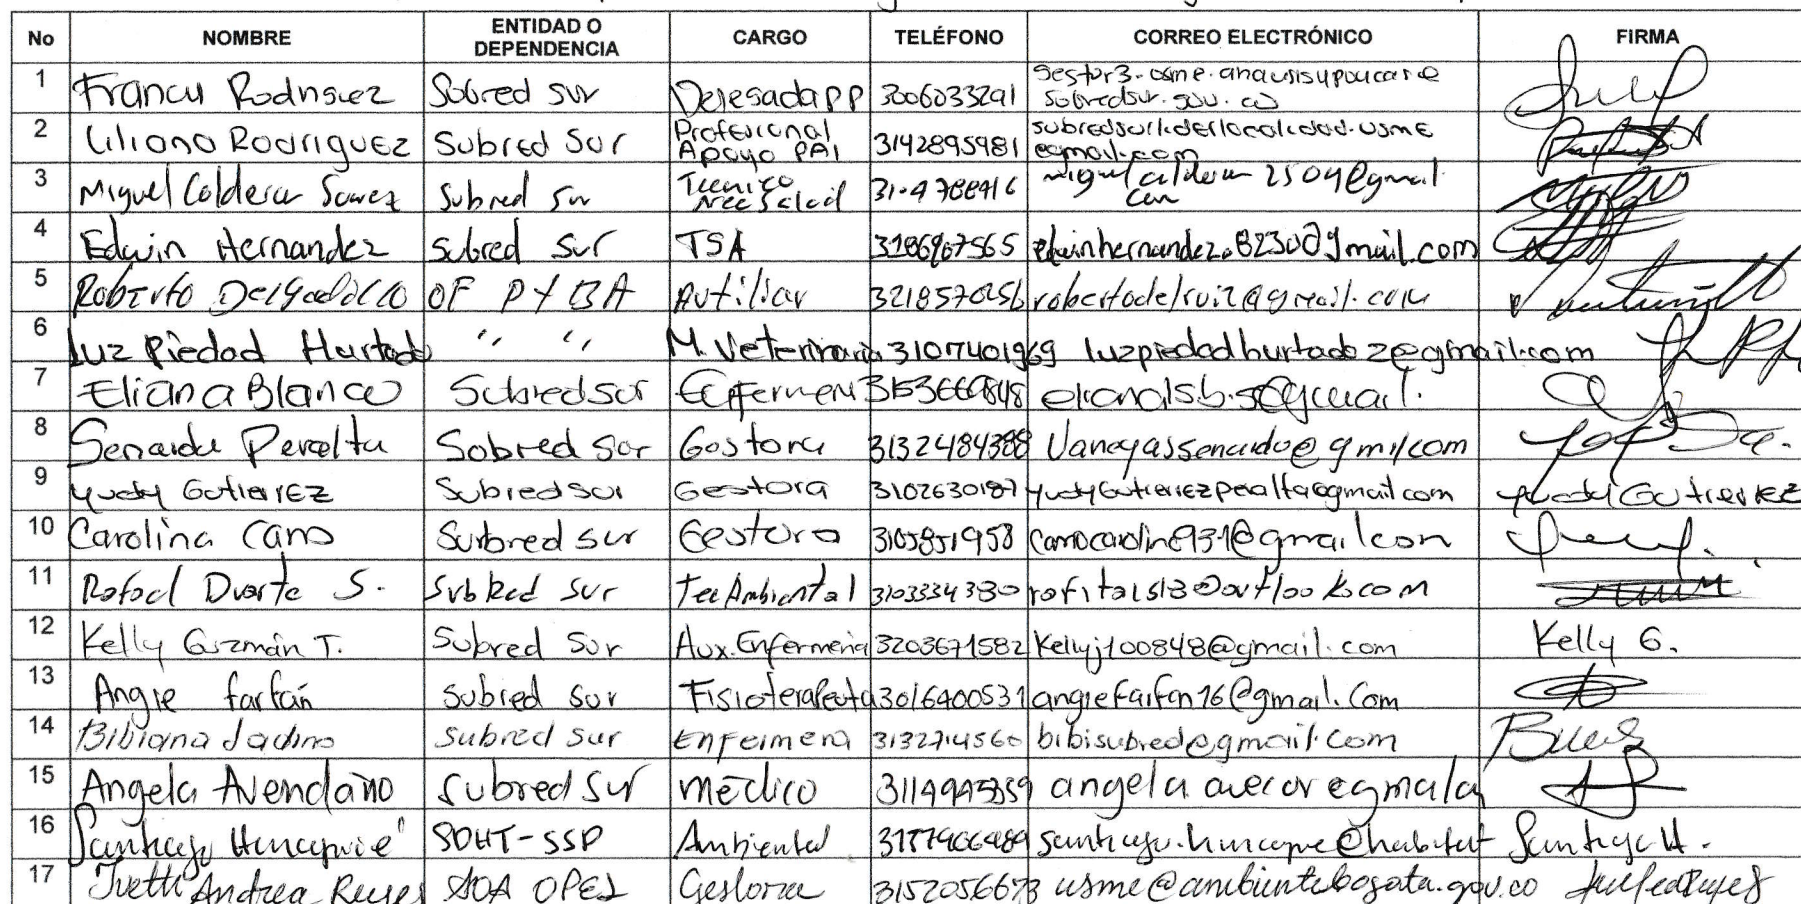 No NOMBRE ENTIDAD O DEPENDENCIA CARGO TELÉFONO CORREO ELECTRÓNICO FIRMA
1 Francy Rodriguez Sobred sur Delegada PP 3006033291 gestor3.usme.analisisypoucar@
sobredsur.gov.co
2 Liliana Rodriguez Subred Sur Profesional Apoyo PAI 3142895981 subredsurliderlocalidad.usme
@gmail.com
3 Miguel Caldera Suarez Subred Sur Tecnico 2504@gmail.
com
4 Edwin Hernandez Subred Sur TSA 3186207565 edwinhernandez.8230@gmail.com
5 Roberto Delgadillo OF PYBA Autiliar 3218570256 robertodelruiz@gmail.com
6 Luz Piedad Hurtado " " M. Veterinaria 3107401969 luzpiedadhurtado2@gmail.com
7 Eliana Blanco Subred sur Enfermera
8 Senaida Peralta Sobred Sur Gostora 3132484388
9 Yudy Gutierrez Subred sur Gestora 3102630187 yudyGutierrezperalta@gmail com Yudy Gutierrez
10 Carolina Cano Surbred sur Gestora 3105851958
11 Rafael Duarte S. Subred Sur Tec Ambiental 3103334380 rofitals13@outlook.com
12 Kelly Guzmán T. Subred Sur Aux. Enfermeria 3203671582 Kellyj100848@gmail.com Kelly G.
13 Angie farfán Subred Sur Fisioterapeuta 3016400531 angiefarfan16@gmail.Com
14 Bibiana Subred sur Enfermera 3132714560 bibisubred@gmail.com
15 Angela Avendaño Subred Sur médico angela
16 Santiago Hincapié SDHT-SSP Ambiental 3177406489 santiago.hincapie@habitat Santiago H.
17 Ivette Andrea Reyes SDA OPEL Gestora 3152056673 usme@ambientebogota.gov.co